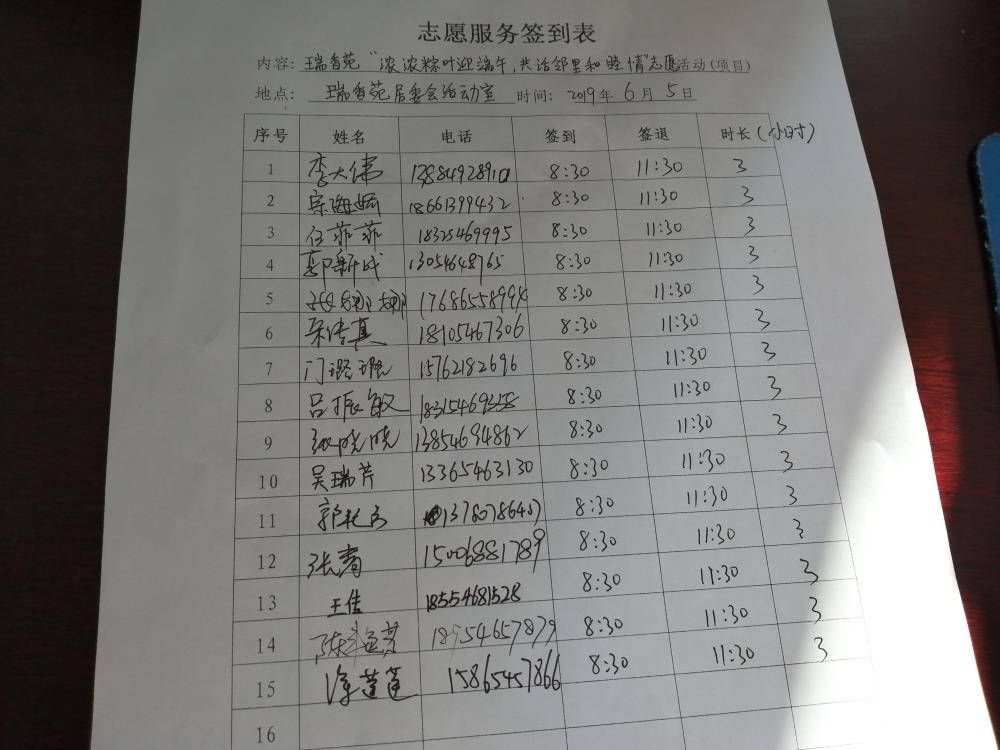 志愿服务签到表
内容：瑞香苑“浓浓粽叶迎端午，共话邻里和睦情”志愿活动(项目)
地点：瑞香苑居委会活动室 时间：2019年6月5日
序号 姓名 电话 签到 签退 时长(小时)
1 李大伟 8:30 11:30 3
2 18661399432 8:30 11:30 3
3 任菲菲 18325469995 8:30 11:30 3
4 郭新成 13054648765 8:30 11:30 3
5 张娜娜 8:30 11:30 3
6 宋传真 18105467306 8:30 11:30 3
7 门璐璐 15762182696 8:30 11:30 3
8 吕振敏 8:30 11:30 3
9 张晓晓 13854694862 8:30 11:30 3
10 吴瑞芹 13365463130 8:30 11:30 3
11 8:30 11:30 3
12 张青 15006881789 8:30 11:30 3
13 王佳 18554681528 8:30 11:30 3
14 18954657879 8:30 11:30 3
15 15865457866 8:30 11:30 3
16